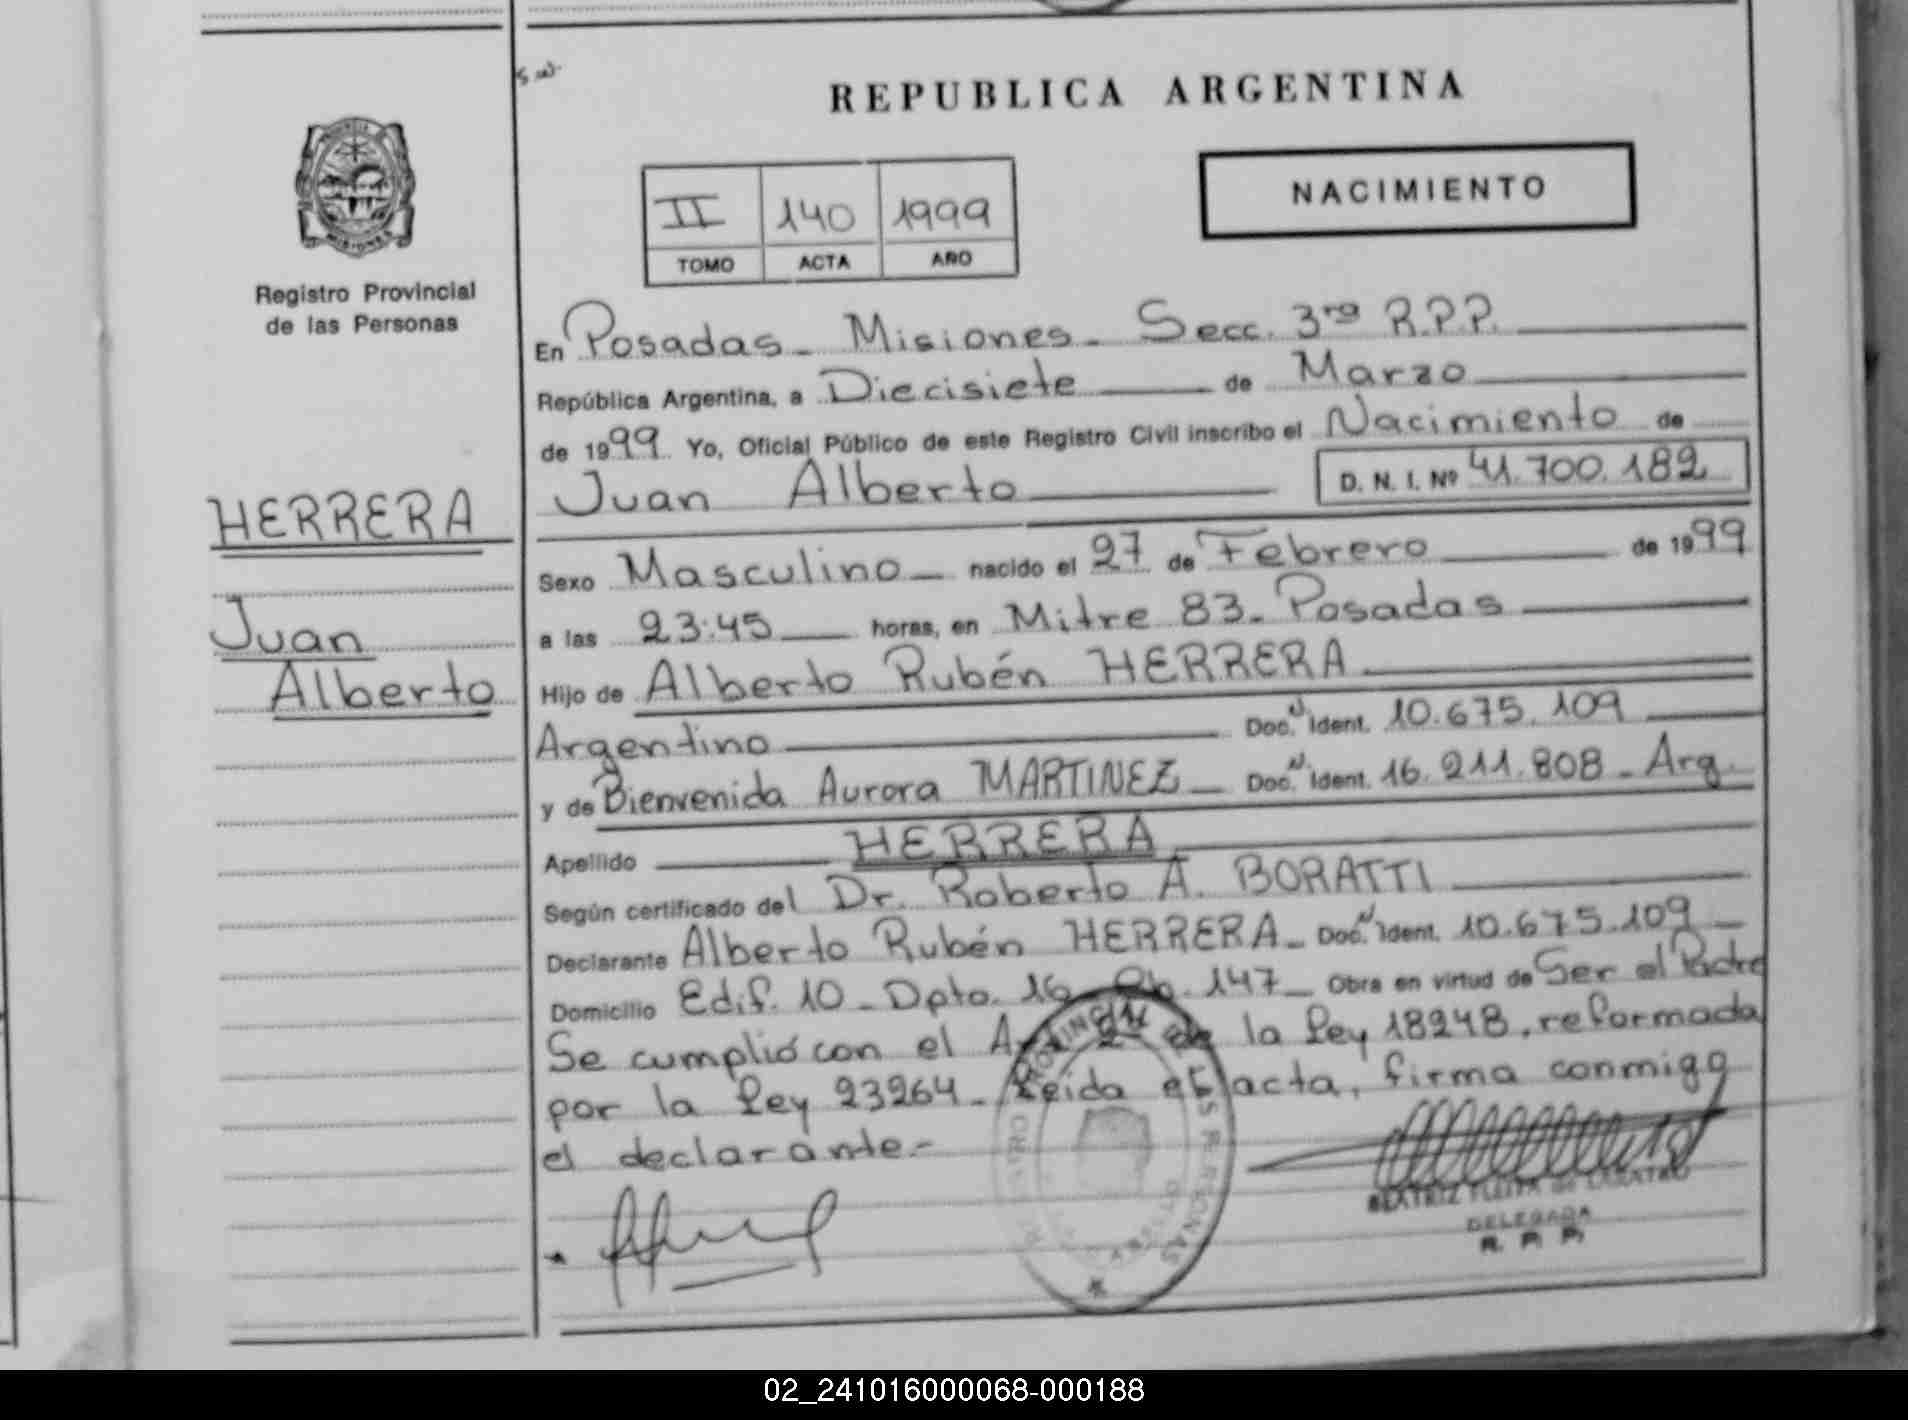 REPUBLICA ARGENTINA
NACIMIENTO
II 140 1999
TOMO ACTA AÑO
PROVINCIA
MISIONES
Registro Provincial
de las Personas
HERRERA
Juan
Alberto
En Posadas - Misiones - Secc. 3ra R.P.P.
República Argentina, a Diecisiete de Marzo
de 1999 Yo, Oficial Público de este Registro Civil inscribo el Nacimiento de
Juan Alberto D. N. I. Nº 41.700.182
Sexo Masculino nacido el 27 de Febrero de 1999
a las 23:45 horas, en Mitre 83 - Posadas
Hijo de Alberto Rubén HERRERA
Argentino Doc. N Ident. 10.675.109
y de Bienvenida Aurora MARTINEZ Doc. N Ident. 16.211.808 - Arg.
Apellido HERRERA
Según certificado del Dr. Roberto A. BORATTI
Declarante Alberto Rubén HERRERA - Doc. N Ident. 10.675.109
Domicilio Edif. 10 - Dpto. 16 147 Obra en virtud de Ser el Padre
Se cumplió con el de la Ley 18248, reformada
por la Ley 23264 - Leida el acta, firma conmigo
el declarante.-
PERSONAS
BEATRIZ
DELEGADA
R. P. P.
02_241016000068-000188